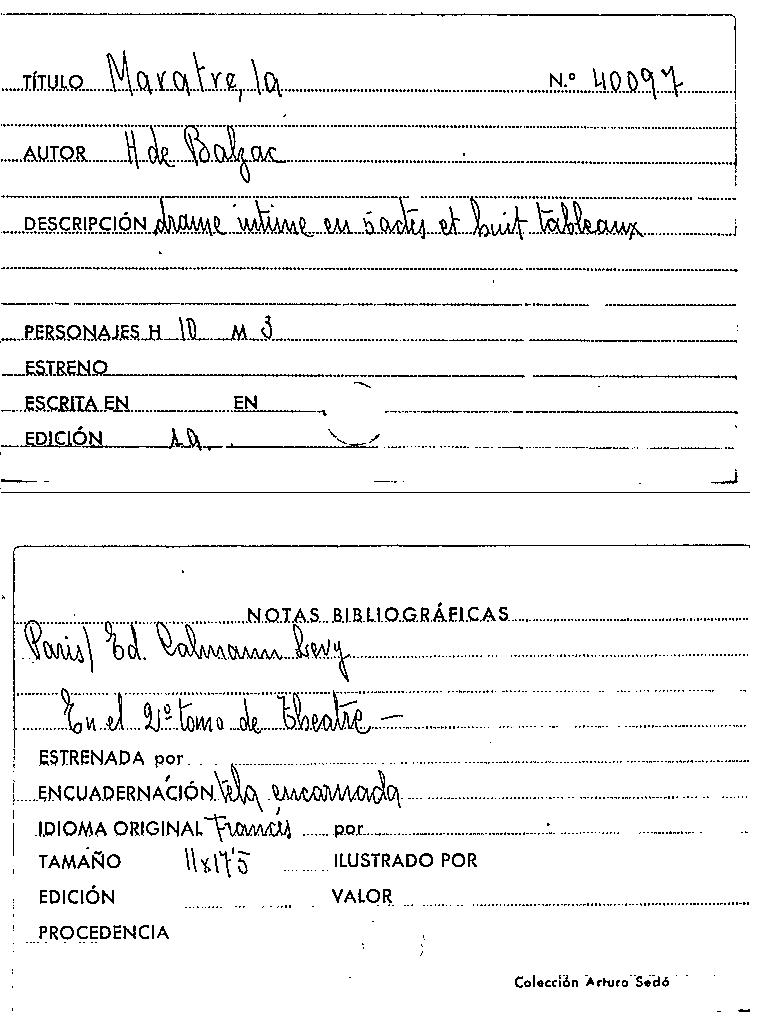 TÍTULO Maratre, la N.º 40097
AUTOR H de Balzac
DESCRIPCIÓN drame intime en 5 actes et huit tableaux
PERSONAJES H 10 M 3
ESTRENO
ESCRITA EN EN
EDICIÓN 1a.
NOTAS BIBLIOGRÁFICAS
Paris/ Ed. Calmann Levy
En el 2º tomo de Theatre —
ESTRENADA por
ENCUADERNACIÓN tela encarnada
IDIOMA ORIGINAL Francés por
TAMAÑO 11x17'5 ILUSTRADO POR
EDICIÓN VALOR
PROCEDENCIA
Colección Arturo Sedó